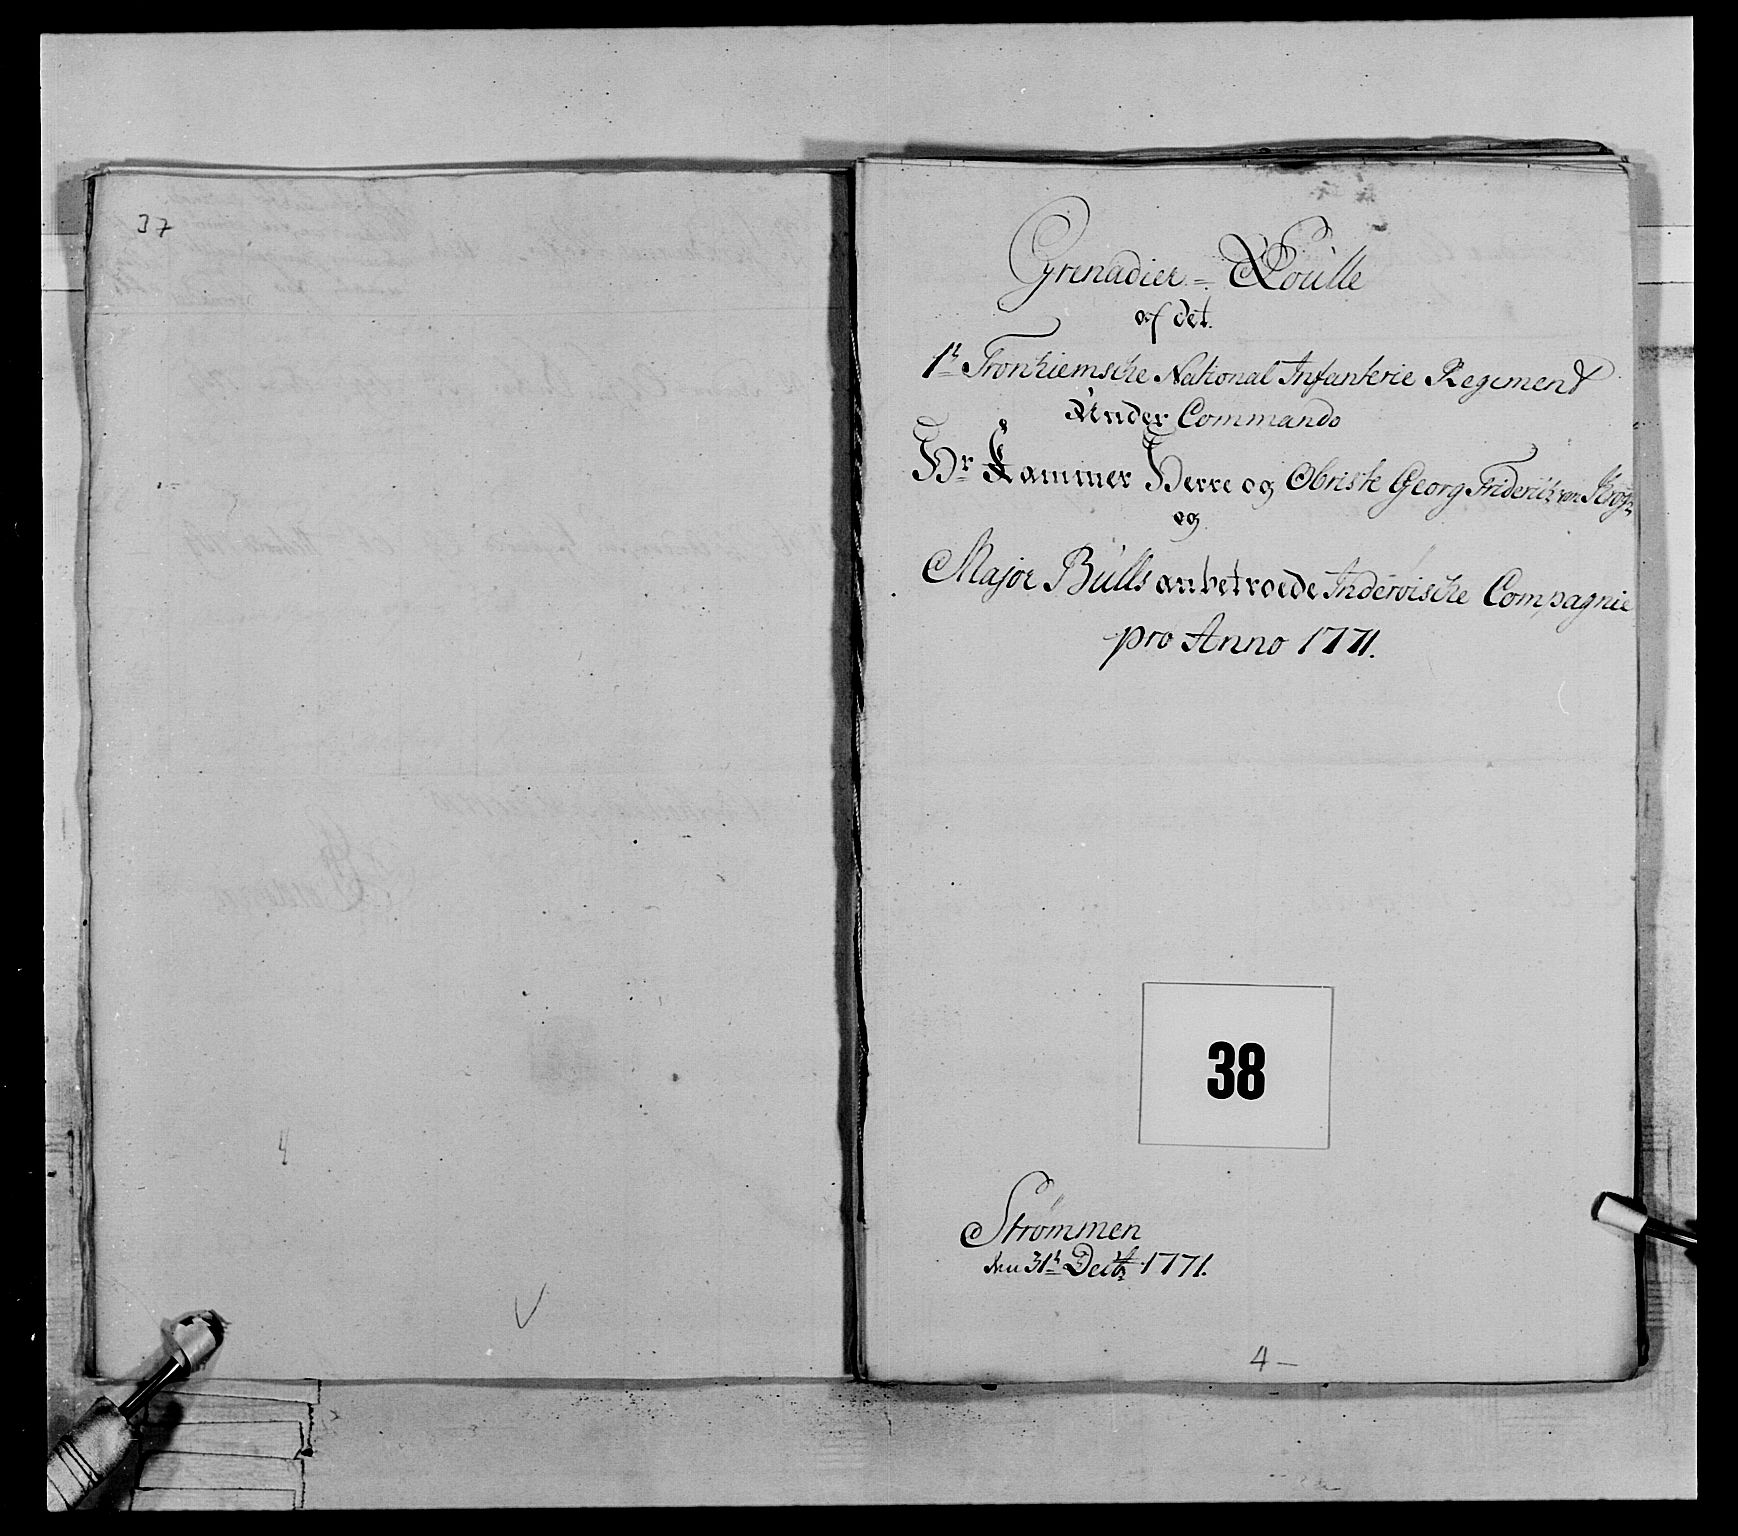 37
Grenadier = Roulle
af det
1te Tronhiemsche National Infanterie Regiment
Under Commando
Hr Kammer Herre og Obriste Georg Friderich von Krogh
og
Major Bülls anbetroede Inderöische Compagnie
pro Anno 1771.
38
Strømmen
den 31te Decbr 1771.
4 —
4